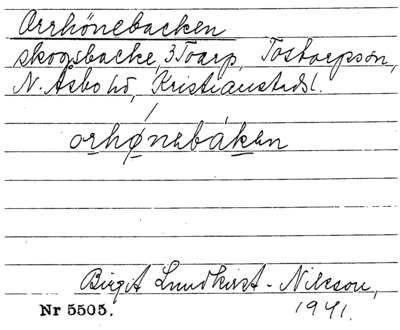 Orrhönebacken
skogsbacke, 3 Toarp, Tostarpsön,
N. Åsbo hd, Kristianstads l.
orhønebáken
Birgit Lundkvist-Nilsson,
Nr 5505. 1941.